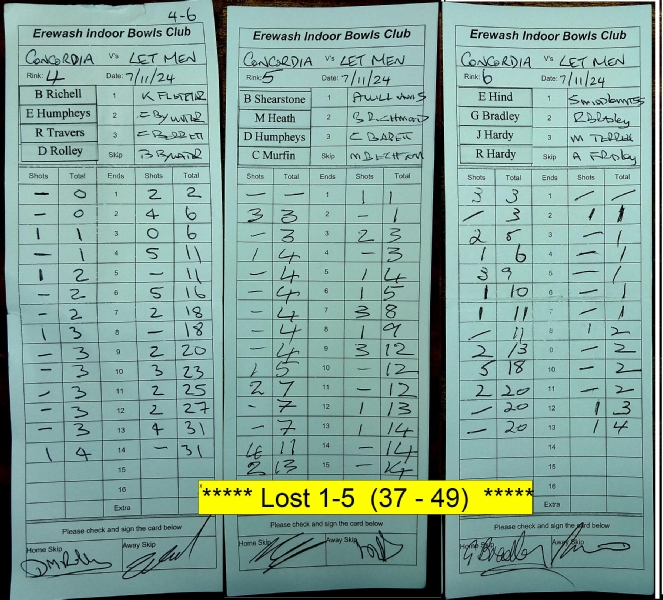 4-6
Erewash Indoor Bowls Club
CONCORDIA V's LET MEN
Rink: 4 Date: 7/11/24
B Richell 1
E Humpheys 2
R Travers 3
D Rolley Skip
Shots Total Ends Shots Total
- 0 1 2 2
- 0 2 4 6
1 1 3 0 6
- 1 4 5 11
1 2 5 - 11
- 2 6 5 16
- 2 7 2 18
1 3 8 - 18
- 3 9 2 20
- 3 10 3 23
- 3 11 2 25
- 3 12 2 27
- 3 13 4 31
1 4 14 - 31
15
16
Extra
Please check and sign the card below
Home Skip Away Skip
Erewash Indoor Bowls Club
CONCORDIA V's LET MEN
Rink: 5 Date: 7/11/24
B Shearstone 1
M Heath 2
D Humpheys 3
C Murfin Skip
Shots Total Ends Shots Total
- - 1 1 1
3 3 2 - 1
- 3 3 2 3
1 4 4 - 3
- 4 5 1 4
- 4 6 1 5
- 4 7 3 8
- 4 8 1 9
- 4 9 3 12
1 5 10 - 12
2 7 11 - 12
- 7 12 1 13
- 7 13 1 14
4 11 14 - 14
2 13 15 - 14
16
Please check and sign the card below
Home Skip Away Skip
Erewash Indoor Bowls Club
CONCORDIA V's LET MEN
Rink: 6 Date: 7/11/24
E Hind 1
G Bradley 2
J Hardy 3
R Hardy Skip
Shots Total Ends Shots Total
3 3 1 - -
- 3 2 1 1
2 5 3 - 1
1 6 4 - 1
3 9 5 - 1
1 10 6 - 1
1 11 7 - 1
- 11 8 1 2
2 13 9 - 2
5 18 10 - 2
2 20 11 - 2
- 20 12 1 3
- 20 13 1 4
14
15
16
Extra
Please check and sign the card below
Home Skip Away Skip
***** Lost 1-5 (37 - 49) *****